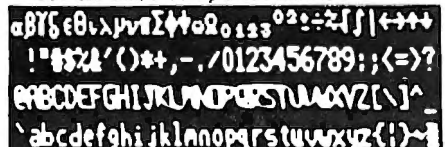 αβγδεθιλμνπΣϕψσΩ₀₁₂₃⁰²±÷¾∫∫|↔→↑↓
!"#$%&'()*+,-./0123456789:;<=>?
@ABCDEFGHIJKLMNOPQRSTUVWXYZ[\]^_
`abcdefghijklmnopqrstuvwxyz{|}~